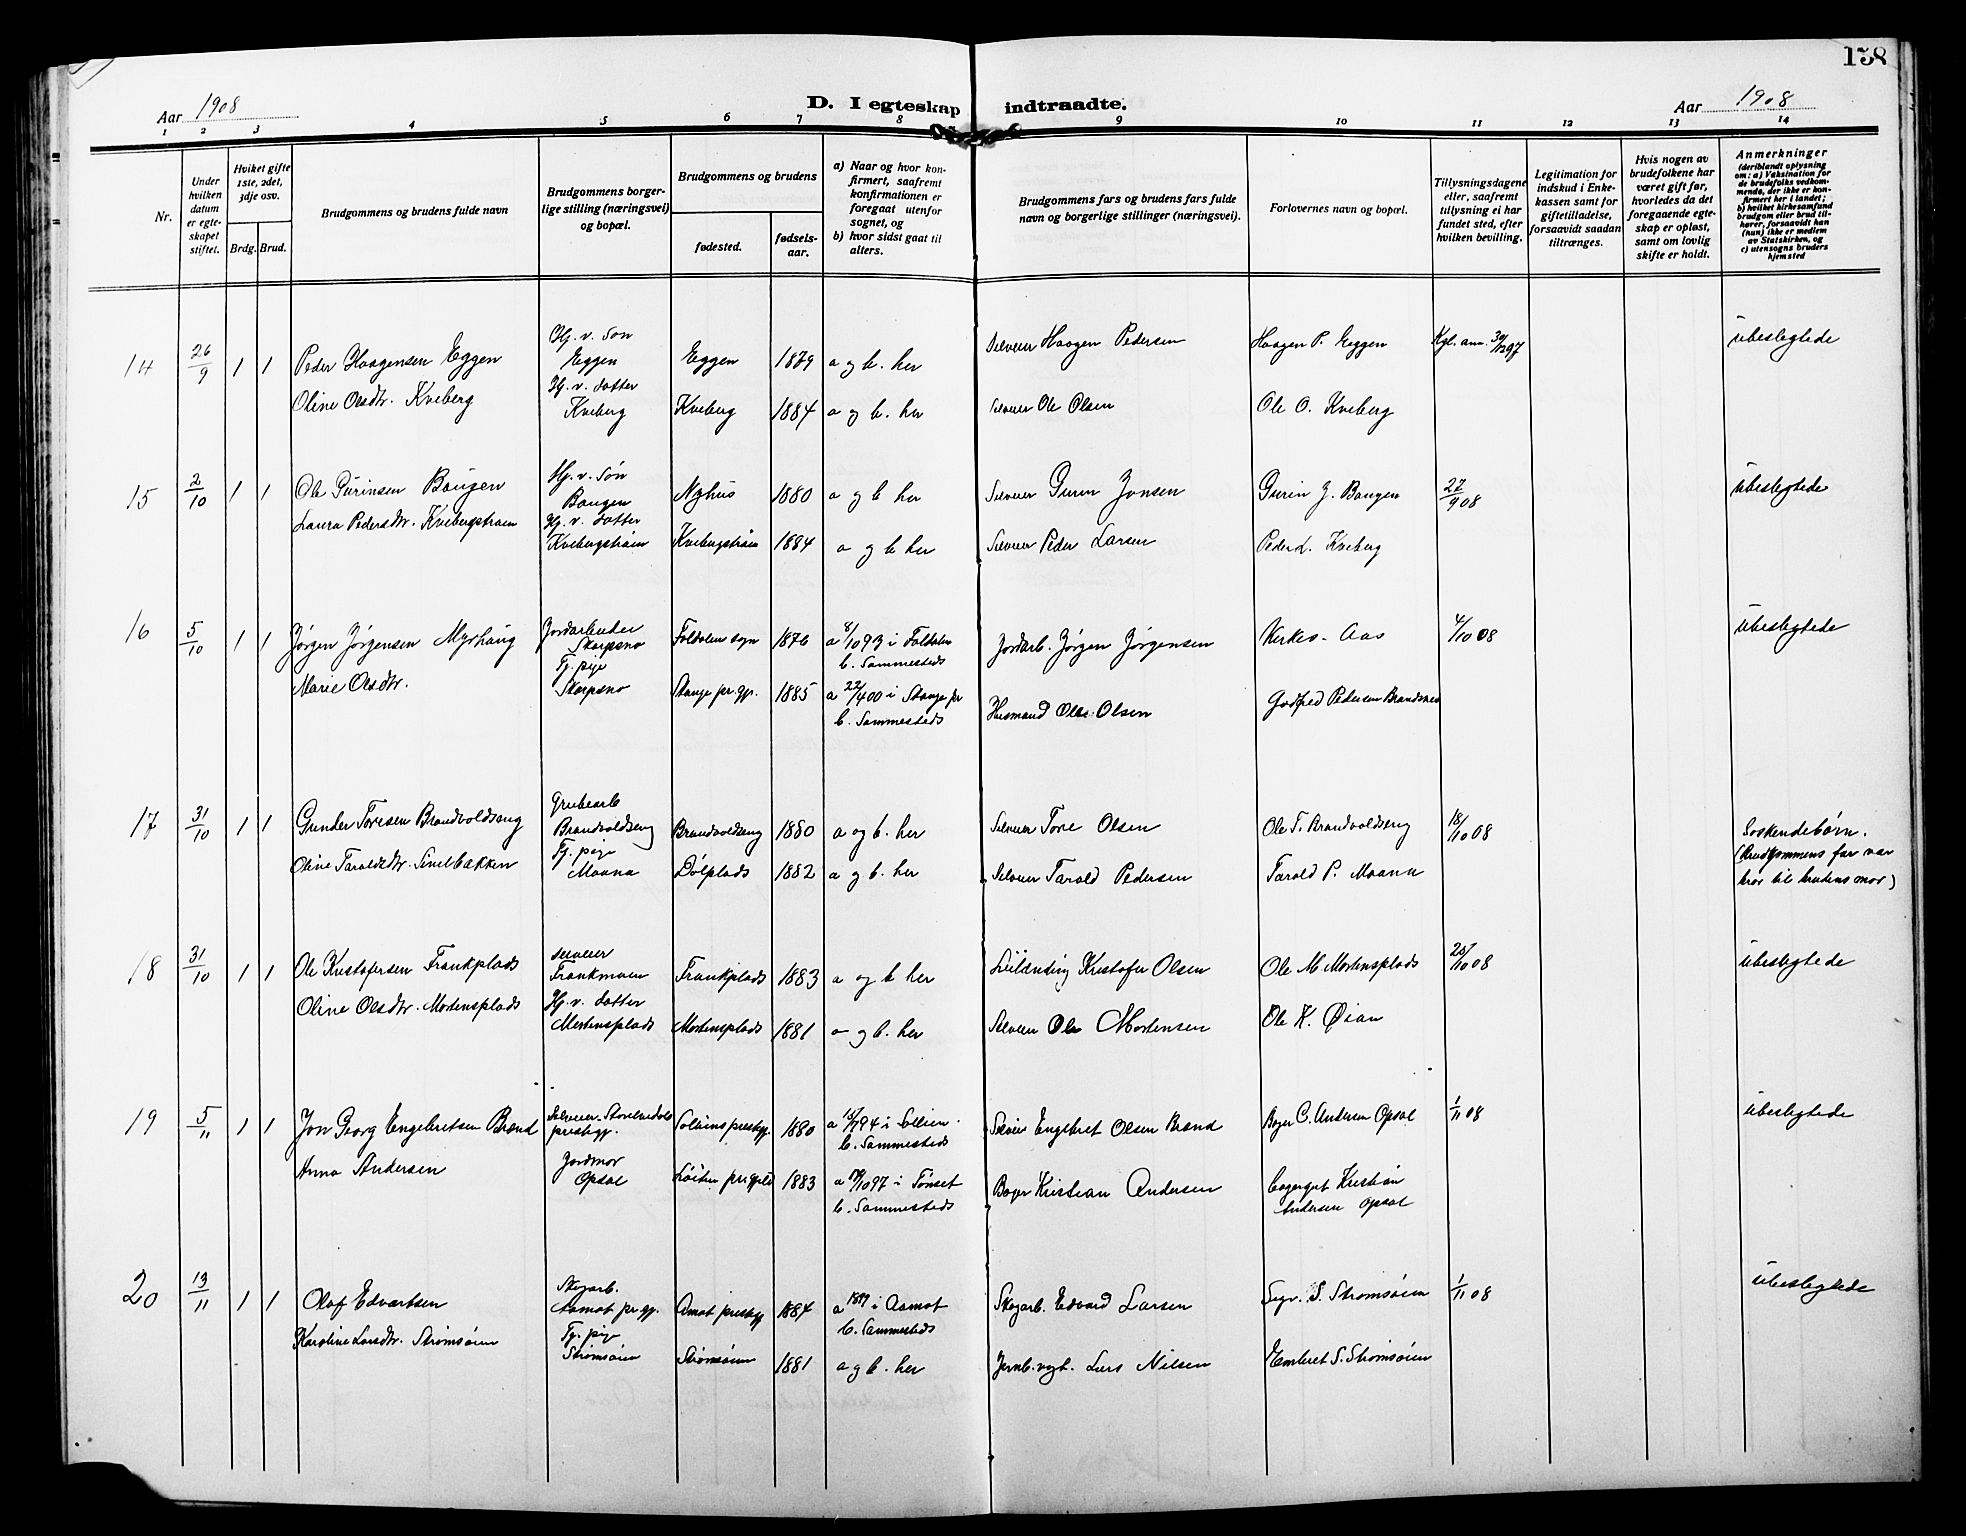 158
Aar 1908
D. I egteskap indtraadte.
Aar 1908
1 2 3 4 5 6 7 8 9 10 11 12 13 14
Nr.
Under hvilken datum er egteskapet stiftet.
Hviket gifte 1ste, 2det, 3dje osv.
Brdg. Brud.
Brudgommens og brudens fulde navn
Brudgommens borgerlige stilling (næringsvei) og bopæl.
Brudgommens og brudens
fødested.
fødselsaar.
a) Naar og hvor konfirmert, saafremt konfirmationen er foregaat utenfor sognet, og
b) hvor sidst gaat til alters.
Brudgommens fars og brudens fars fulde navn og borgerlige stillinger (næringsvei).
Forlovernes navn og bopæl.
Tillysningsdagene eller, saafremt tillysning ei har fundet sted, efter hvilken bevilling.
Legitimation for indskud i Enkekassen samt for giftetilladelse, forsaavidt saadan tiltrænges.
Hvis nogen av brudefolkene har været gift før, hvorledes da det foregaaende egteskap er opløst, samt om lovlig skifte er holdt.
Anmerkninger (deriblandt oplysning om: a) Vaksination for de brudefolks vedkommende, der ikke er konfirmert her i landet; b) hvilket kirkesamfund brudgom eller brud tilhører, forsaavidt han (hun) ikke er medlem av Statskirken, og c) utensogns bruders hjemsted
14 26/9 1 1 Peder Haagensen Eggen Hj. v. Søn Eggen Eggen 1879 a og b. her Selveier Haagen Pedersen Haagen P. Eggen Kgl. ann. 30/12 97 ubeslegtede
Oline Olsdtr. Kveberg Hj. v. datter Kveberg Kveberg 1884 a og b. her Selveier Ole Olsen Ole O. Kveberg
15 2/10 1 1 Ole Gurinsen Bangen Hj. v. Søn Bangen Nyhus 1880 a og b her Selveier Gurin Jonsen Gurin J. Bangen 27/9 08 ubeslegtede
Laura Pedersdtr. Kvebergstrøm Hj. v. datter Kvebergstrøm Kvebergstrøm 1884 a og b her Selveier Peder Larsen Peder L. Kveberg
16 5/10 1 1 Jørgen Jørgensen Myrhaug Jordarbeider Skarpsno Foldalen sogn 1876 a 8/10 93 i Foldalen b. Sammesteds Jordarb. Jørgen Jørgensen Kirkes. Aas 4/10 08 ubeslegtede
Marie Olsdtr. Tj. pige Skarpsno Stange pr.gj. 1885 a 22/4 00 i Stange pr b. Sammesteds Husmand Ole Olsen Godfred Pedersen Brandsnes
17 31/10 1 1 Gunder Toresen Brandvoldseng Grubearb Brandvoldseng Brandvoldseng 1880 a og b. her Selveier Tore Olsen Ole T. Brandvoldseng 18/10 08 Søskendebørn. (Brudgommens far var bror til brudens mor)
Oline Taroldsdtr. Sinelbakken Tj. pige Moana Dølplads 1882 a og b. her Selveier Tarold Pedersen Tarold P. Moana
18 31/10 1 1 Ole Kristofersen Frankplads Selveier Frankmoen Frankplads 1883 a og b her Leilænding Kristofer Olsen Ole M Mortensplads 25/10 08 ubeslegtede
Oline Olsdtr. Mortensplads Hj. v. datter Mortensplads Mortensplads 1881 a og b. her Selveier Ole Mortensen Ole K. Øian
19 5/11 1 1 Jon Georg Engebretsen Brænd Selveier Storelvedal prestegj. Solliens prestegj. 1880 a 15/7 94 i Sollien. b. Sammesteds Selveier Engebret Olsen Brænd Bager C. Andersen Opsal 1/11 08 ubeslegtede
Anna Andersen Jordmor Opsal Løiten prestegjeld 1883 a 10/10 97 i Tønset b. Sammesteds Bager Kristian Andersen Kristian Andersen Opsal
20 13/11 1 1 Olaf Edvartsen Skogarb. Aamot pr.gj. Amot prestegj 1884 a 1899 i Aamot b. Sammesteds Skogarb. Edvard Larsen S. Strømsøien 1/11 08 ubeslegtede
Karoline Larsdtr. Strømsøien Tj. pige Strømsøien Strømsøien 1881 a og b. her Jernb.vogt. Lars Nilsen Embret S. Strømsøien